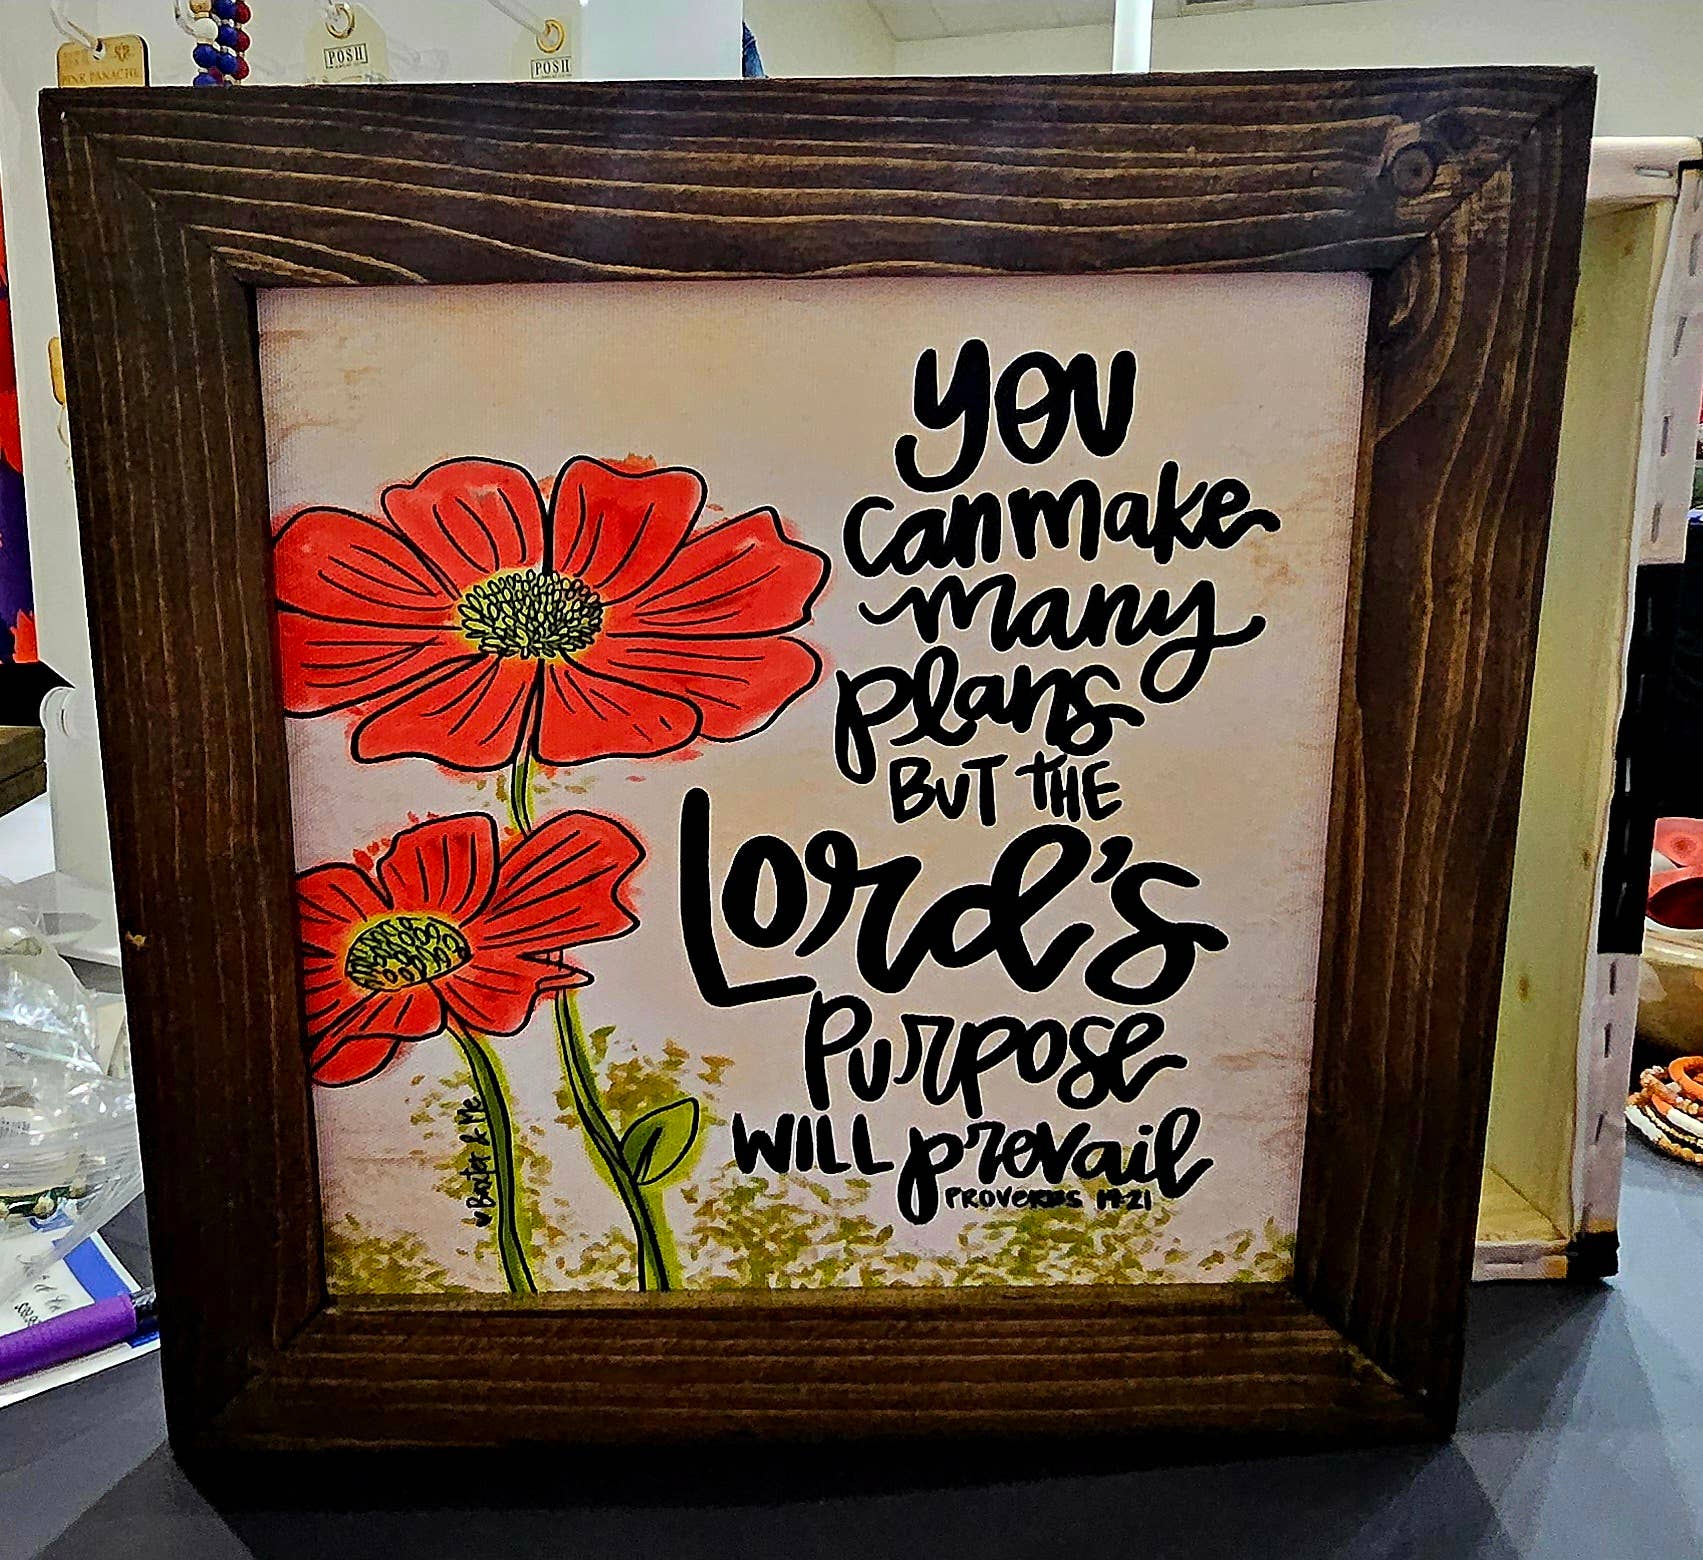 PINK PANACHE
POSH
POSH
you
can make
many
plans
BUT THE
Lord's
Purpose
WILL prevail
PROVERBS 19:21
Baxter & Me